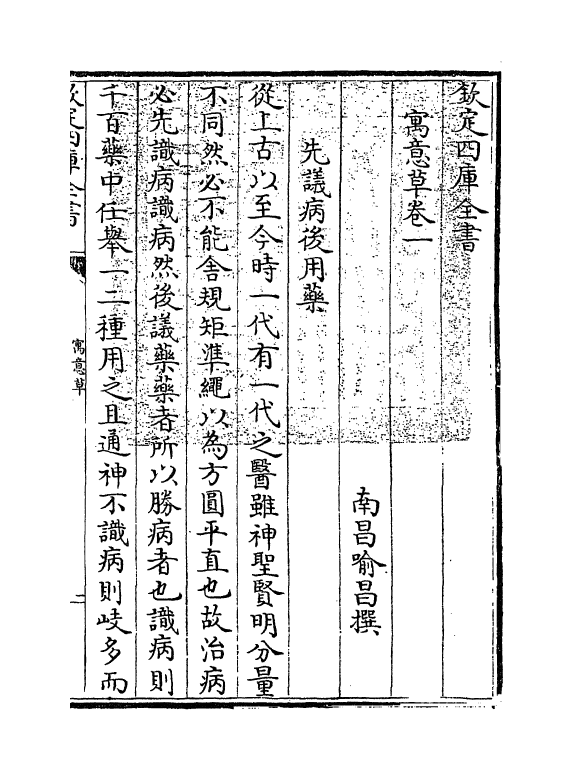 欽定四庫全書
寓意草卷一
南昌喻昌撰
先議病後用藥
從上古以至今時一代有一代之醫雖神聖賢明分量
不同然必不能舍規矩準繩以為方圓平直也故治病
必先識病識病然後議藥藥者所以勝病者也識病則
千百藥中任舉一二種用之且通神不識病則岐多而
欽定四庫全書
寓意草
二